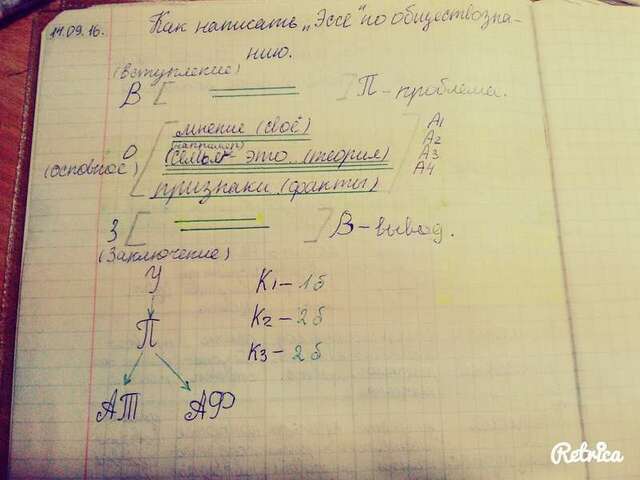 14.09.16. Как написать „Эссе" по обществозна-
нию.
(Вступление)
В [ ] П - проблема.
мнение (своё) А1
(например) А2
О (Семья - это.. (теория) А3
(основное) А4
признаки (факты)
З [ ] В - вывод.
(Заключение)
У К1 - 1б
К2 - 2б
П
К3 - 2б
АТ АФ
Retrica